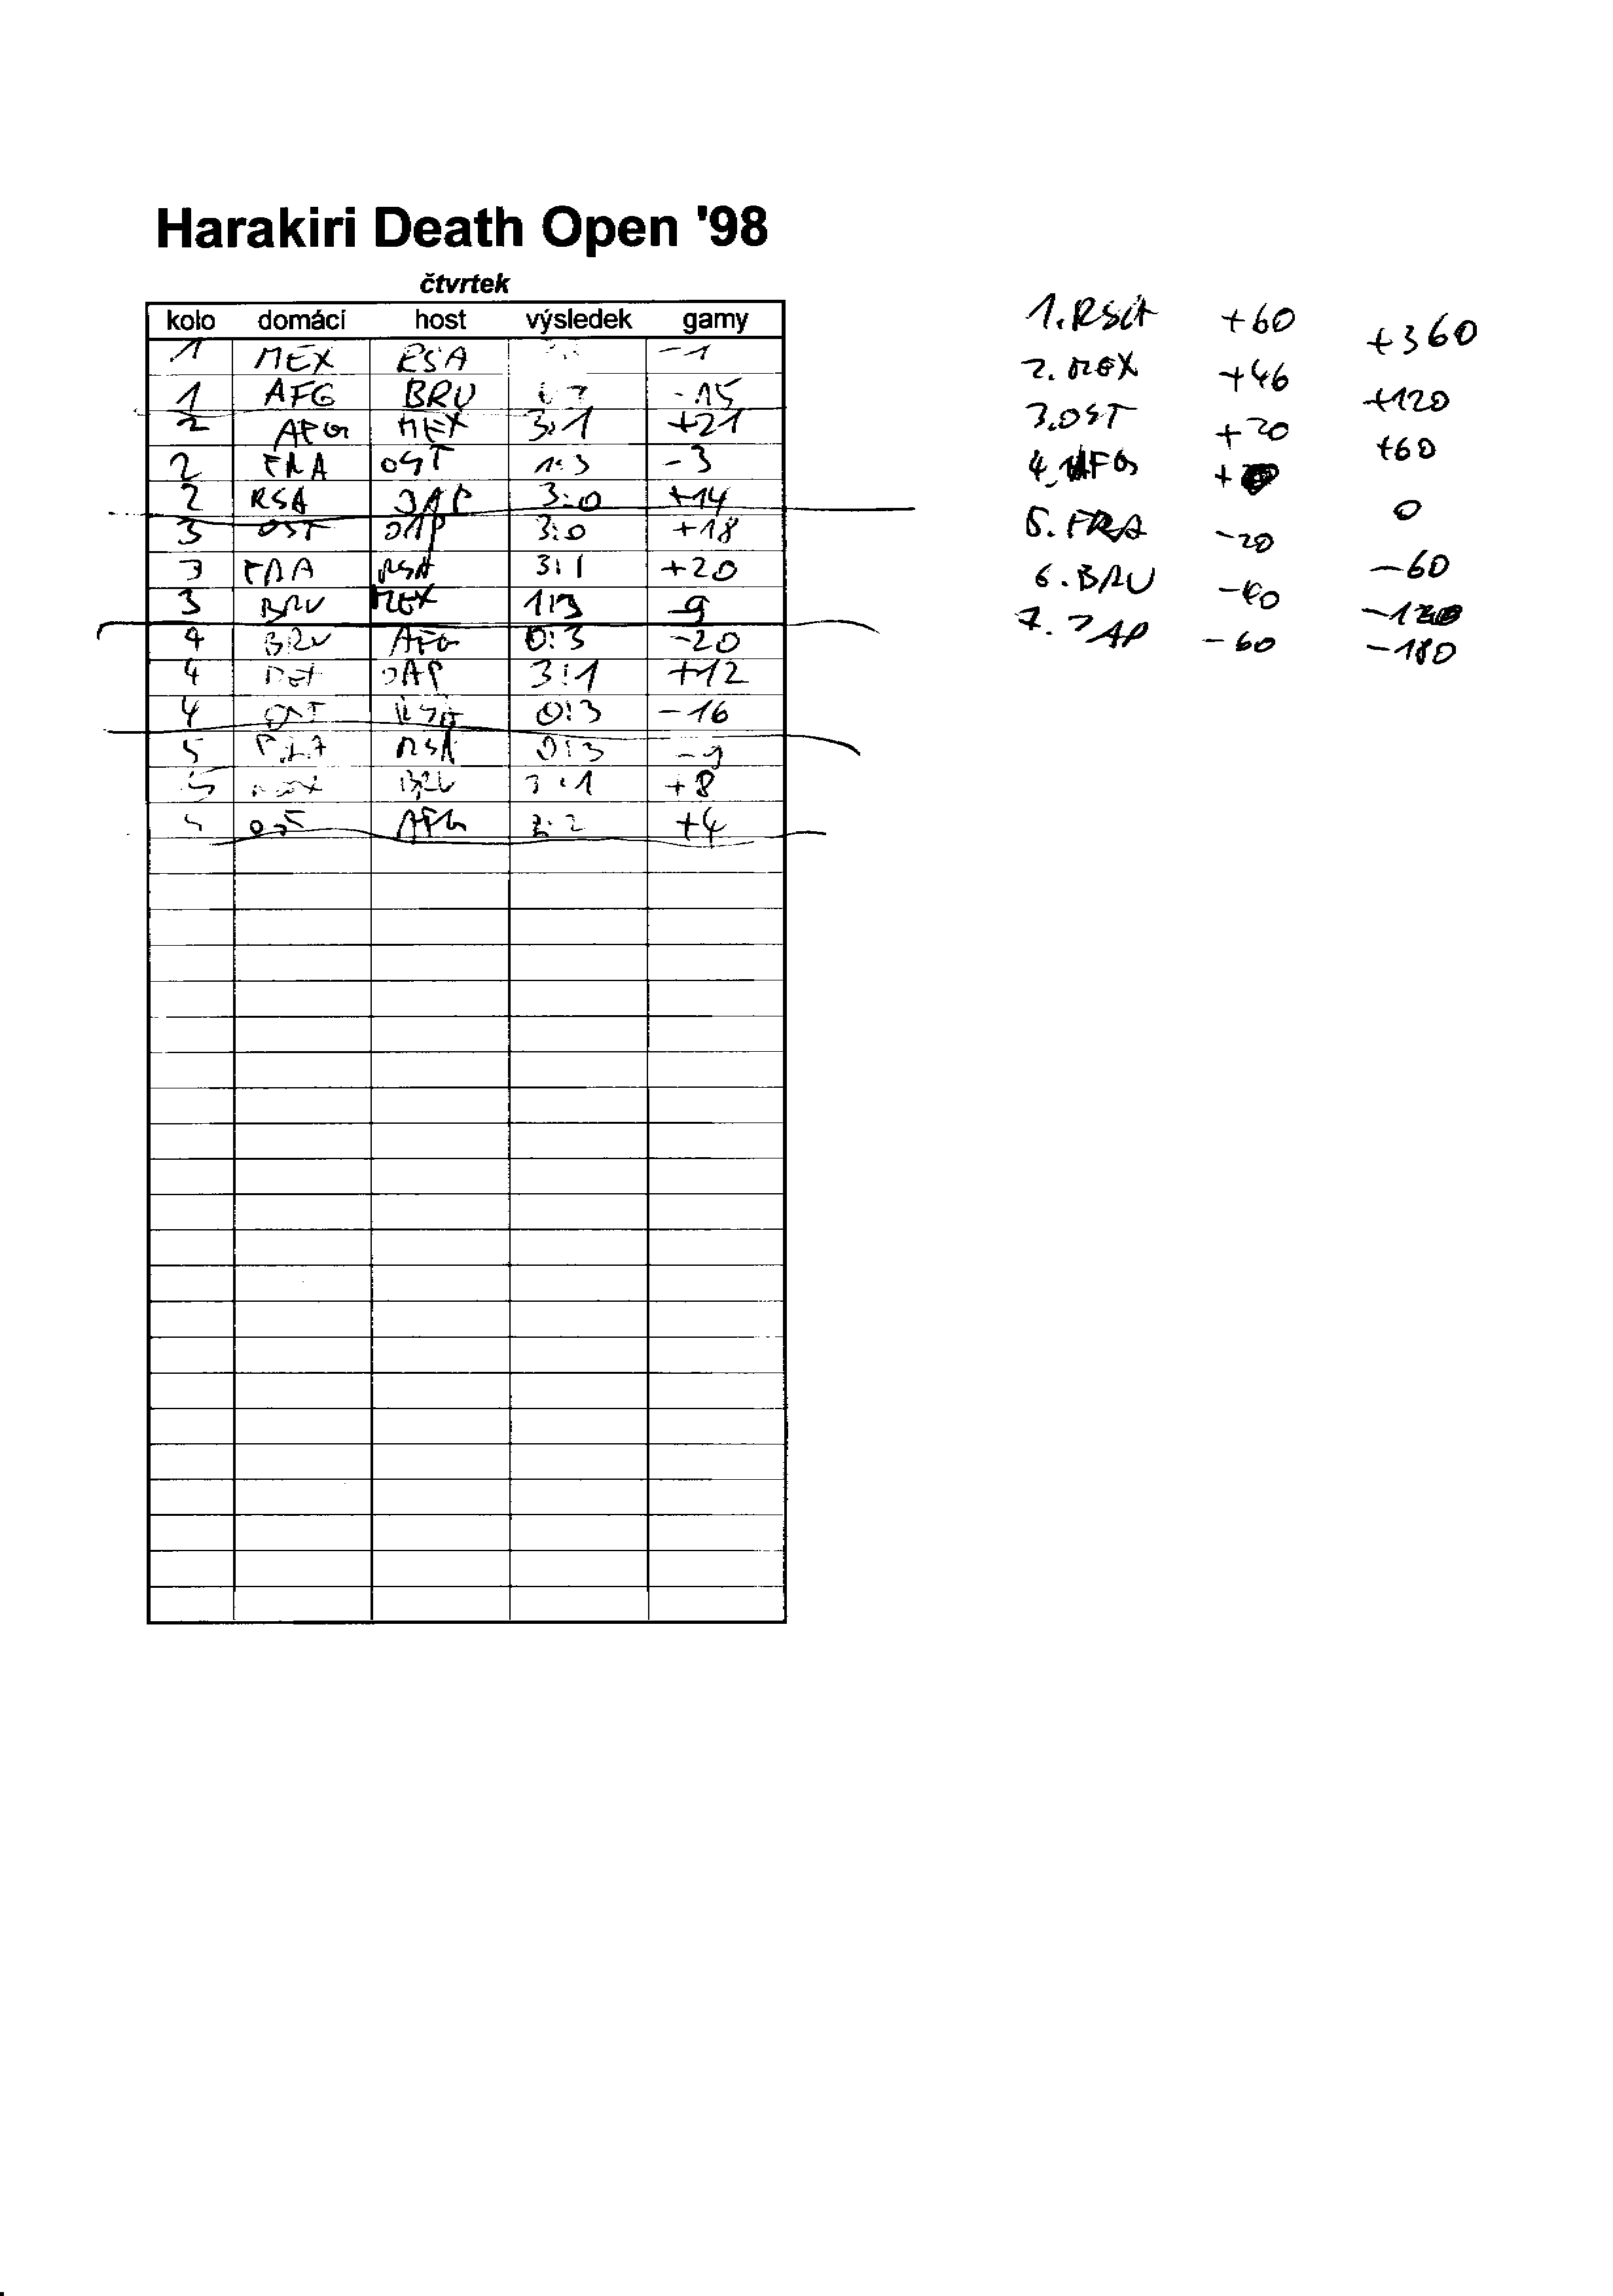 Harakiri Death Open '98
čtvrtek
kolo domácí host výsledek gamy
1 MEX RSA -1
1 AFG BRU -15
2 AFG MEX 3:1 +21
2 FRA OST 1:3 -3
2 RSA JAP 3:0 +14
3 OST JAP 3:0 +18
3 FRA RSA 3:1 +20
3 BRU MEX 1:3 -9
4 BRU AFG 0:3 -20
4 JAP 3:1 +12
4 OST RSA 0:3 -16
5 RSA 0:3 -9
5 MEX BRU 3:1 +8
5 OST AFG +4
1. RSA +60 +360
2. MEX +46 +120
3. OST +20 +60
4. AFG 0
5. FRA -20 -60
6. BRU -40
7. JAP -60 -180